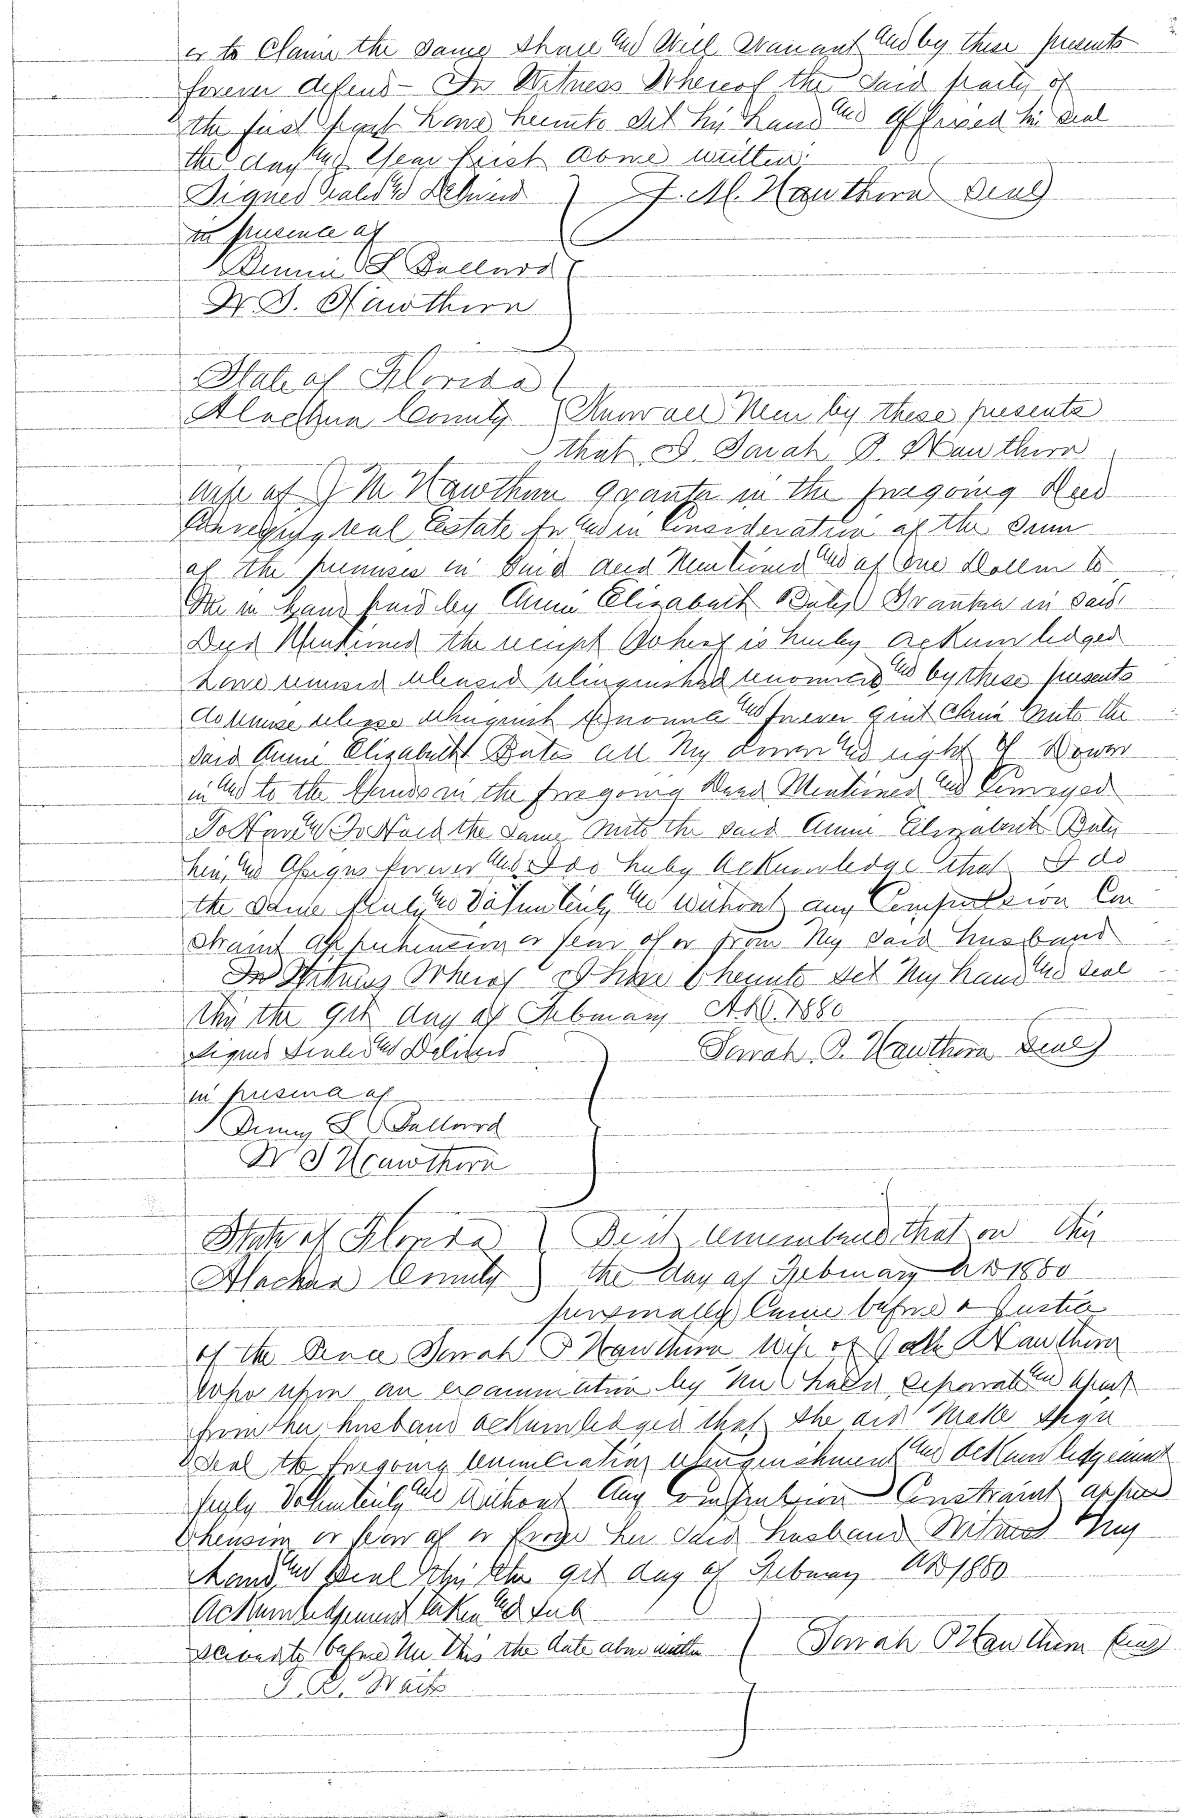 or to Claim the same Shall and Will Warrant and by these presents
forever defend - In Witness Whereof the Said party of
the first part have hereunto set his hand and Affixed his seal
the day and Year first above written.
Signed sealed and Delivered J. M. Hawthorn Seal
in presence of
S Ballard
W. S. Hawthorn
State of Florida
Alachua County Know all Men by these presents
that I Sarah P. Hawthorn
wife of J M Hawthorn Grantor in the foregoing Deed
Conveying real Estate for and in Consideration of the Sum
of the premises in Said deed Mentioned and of One Dollar to
Me in hand paid by Annie Elizabeth Bates Grantee in said
Deed Mentioned the receipt Whereof is hereby acknowledged
have remised released relinquished renounced and by these presents
do remise release relinquish renounce and forever quit claim unto the
said Annie Elizabeth Bates all My dower and right of Dower
in and to the lands in the foregoing Deed Mentioned and Conveyed
To Have & To Hold the same unto the said Annie Elizabeth Bates
heirs and Assigns forever and I do hereby acknowledge that I do
the same freely and Voluntarily and without any Compulsion Con
straint apprehension or fear of or from My said husband
In Witness Whereof I have hereunto set My hand and seal
this the 9th day of February A.D. 1880
Signed Sealed and Delivered Sarah P. Hawthorn Seal
in presence of
S Ballard
W S Hawthorn
State of Florida Be it remembered that on this
Alachua County the day of February AD 1880
personally Came before a Justice
of the Peace Sarah P Hawthorn wife of Hawthorn
who upon an examination by me had separate and apart
from her husband acknowledged that she did Make sign
& seal the foregoing renunciation relinquishment and acknowledgement
freely Voluntarily and without Any Compulsion Constraint appre
hension or fear of or from her said husband Witness My
hand and seal this the 9th day of February AD 1880
Acknowledgement taken and sub
scribed to before Me this the date above written Sarah P Hawthorn Seal